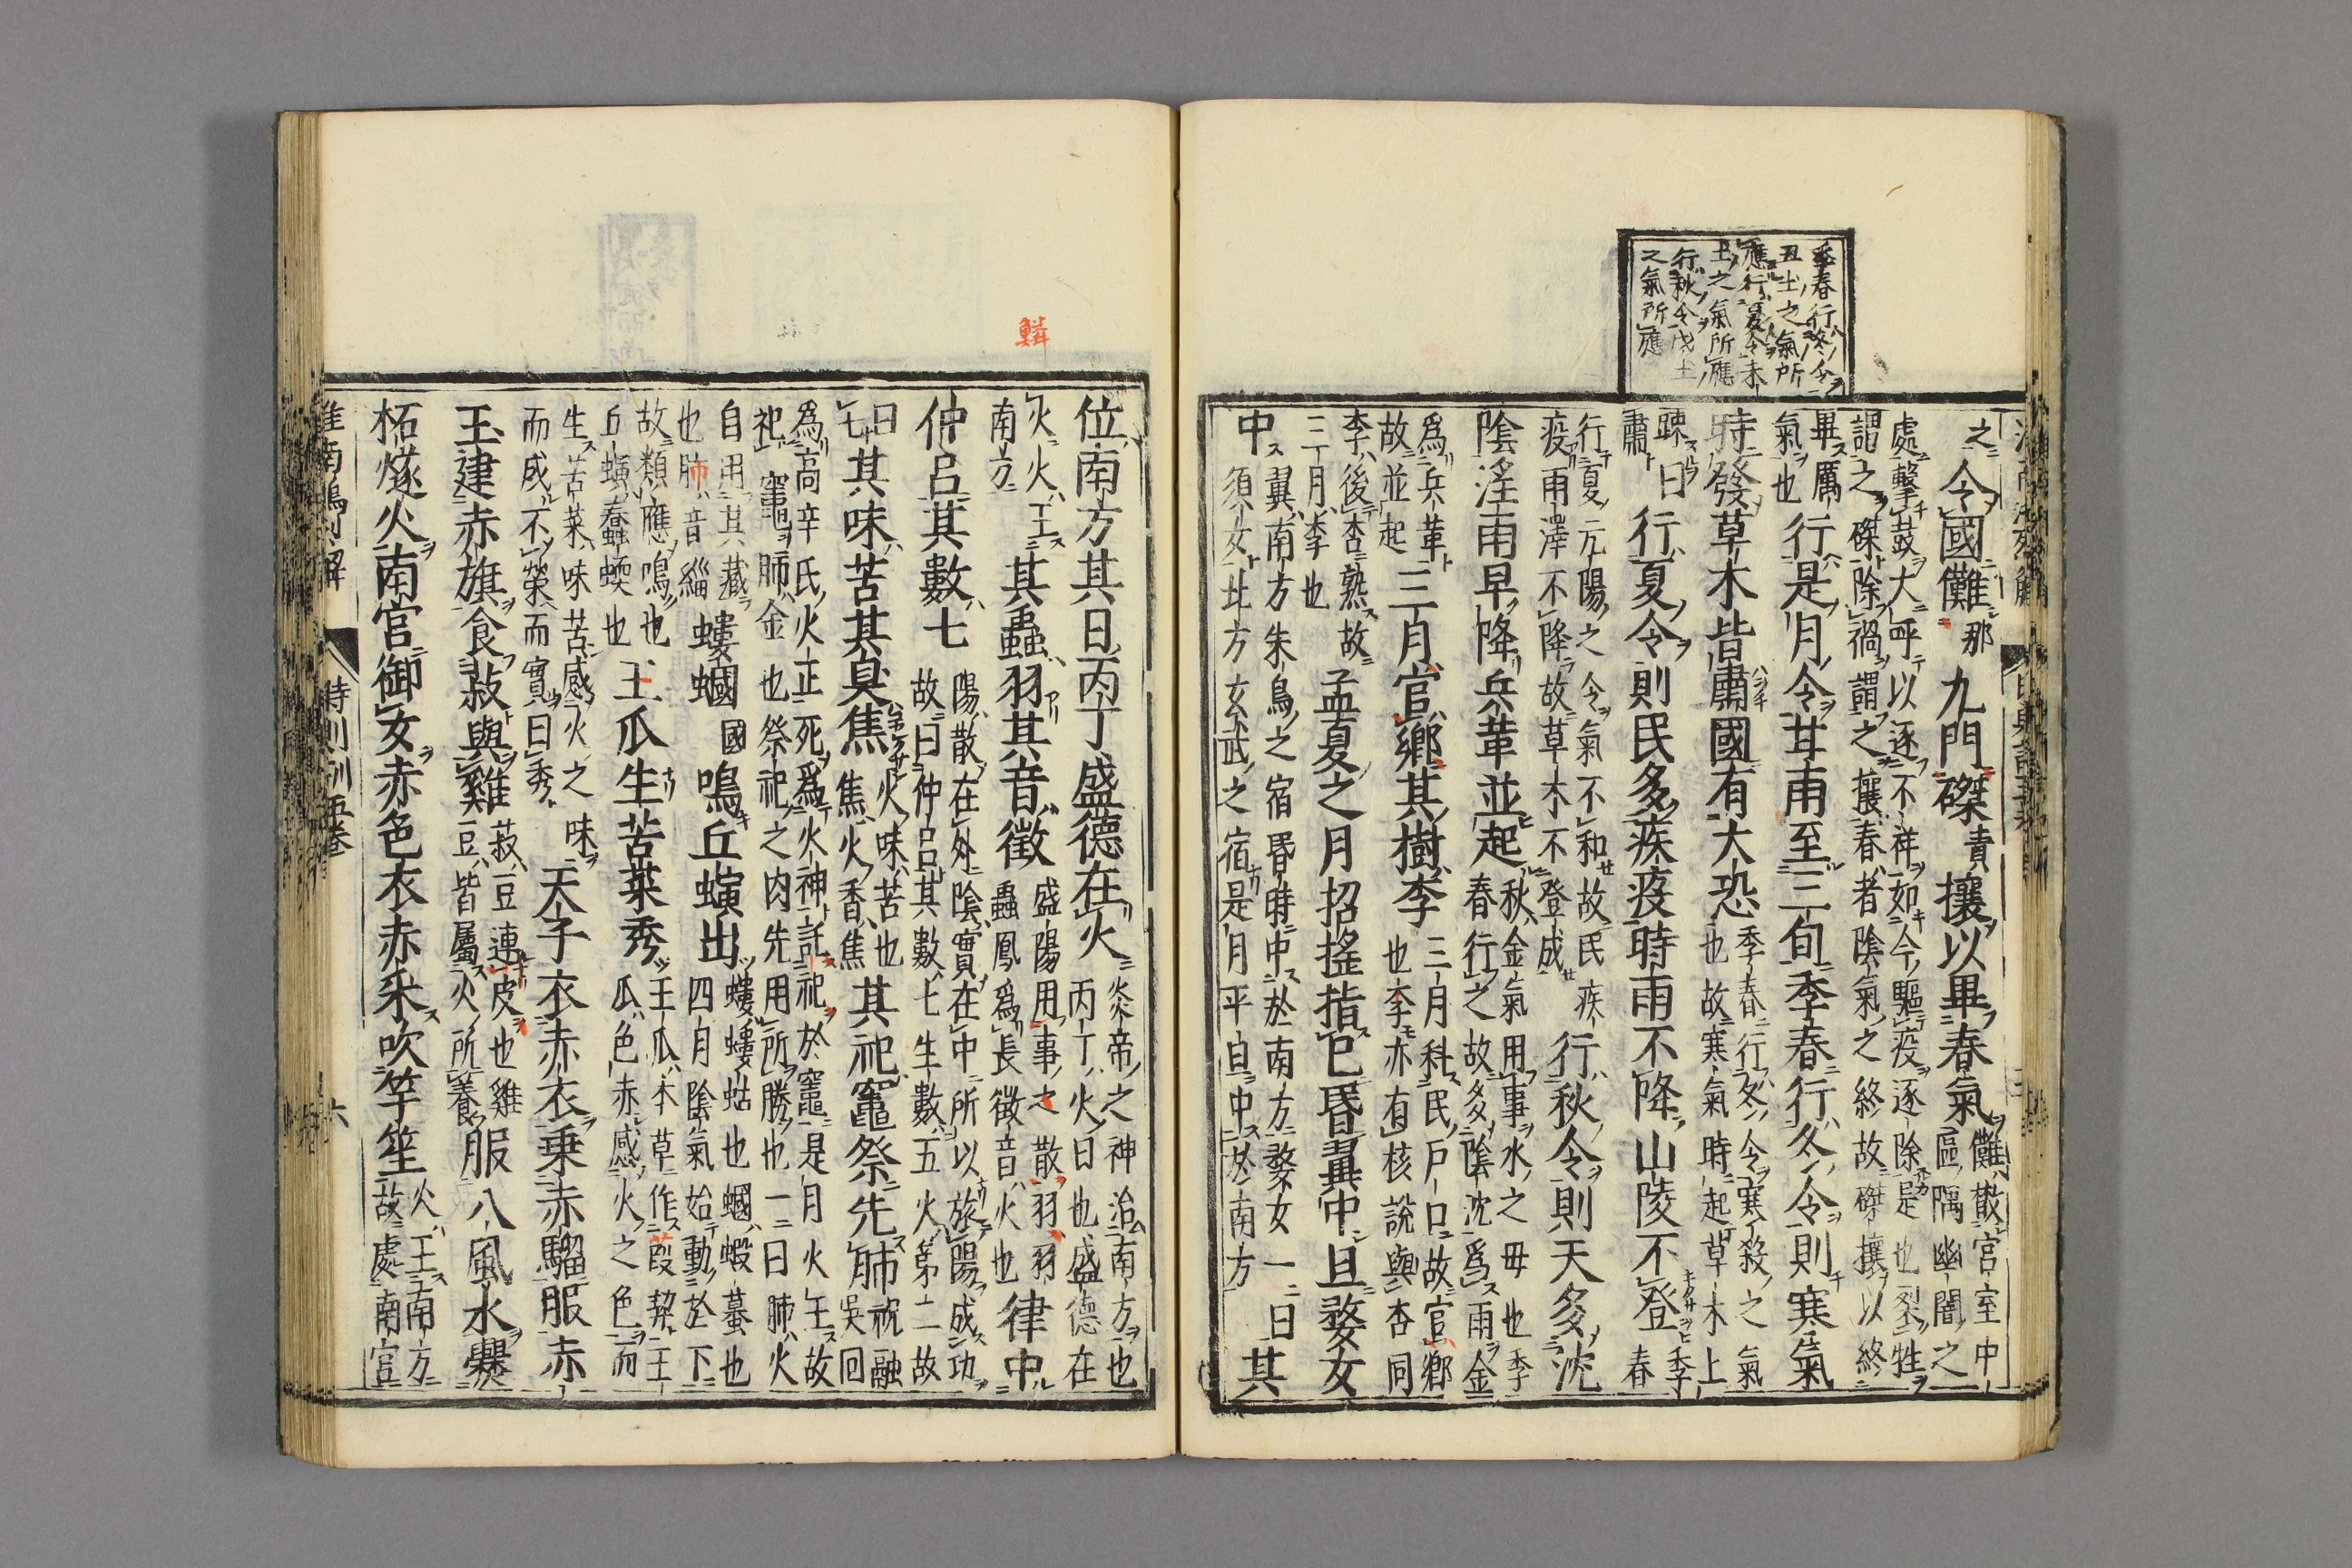 季春行冬令
丑土之氣所
應行夏令未
土之氣所應
行秋令戌土
之氣所應
之令國儺那九門磔責攘以畢春氣儺散宮室中區隅幽闇之
處擊鼓大呼以逐不祥如今驅疫逐除是也裂牲
謂之磔除禍謂之攘春者陰氣之終故磔攘以終
畢厲氣也行是月令甘雨至三旬季春行冬令則寒氣
時發草木皆肅國有大恐季春行冬令寒殺之氣也故寒氣時起草木上
踈曰肅行夏令則民多疾疫時雨不降山陵不登季春
行夏亢陽之令氣不和故民疾疫雨澤不降故草木不登成行秋令則天多沈
陰淫雨早降兵革並起秋金氣用事水之毋也季春行之故多陰沈爲雨金
爲兵革故並起三月官鄉其樹李三月科民戶口故官鄉也李亦有核說與杏同
李後杏熟故三月李也孟夏之月招搖指巳昏翼中旦婺女
中翼南方朱鳥之宿昏時中於南方婺女一曰須女北方玄武之宿是月平旦中於南方其
位南方其日丙丁盛德在火炎帝之神治南方也丙丁火日也盛德在
火火王南方其蟲羽其音徵盛陽用事之散羽羽蟲鳳爲長徵音火也律中
仲呂其數七陽散在外陰實在中所以旅陽成功故曰仲呂其數七生數五火第二故
曰七其味苦其臭焦火味苦也焦火香焦其祀竈祭先肺祝融吳回
爲高辛氏火正死爲火神託祀於竈是月火王故
祀竈肺金也祭祀之肉先用所勝也一曰肺火
自用其藏也肺音緇螻蟈國鳴丘螾出螻螻蛄也蟈蝦蟇也四月陰氣始動於下
故類應鳴也丘螾蠢蝡也王瓜生苦菜秀王瓜本草作葭𦸗王瓜色赤感火之色而
生苦菜味苦感火之味而成不榮而實曰秀天子衣赤衣乗赤騮服赤
玉建赤旗食菽與雞菽豆連皮也雞豆皆屬火所養服八風水爨
柘燧火南宮御女赤色衣赤采吹竽笙火王南方故處南宮
淮南鴻烈解 時則訓五卷 六
鱗